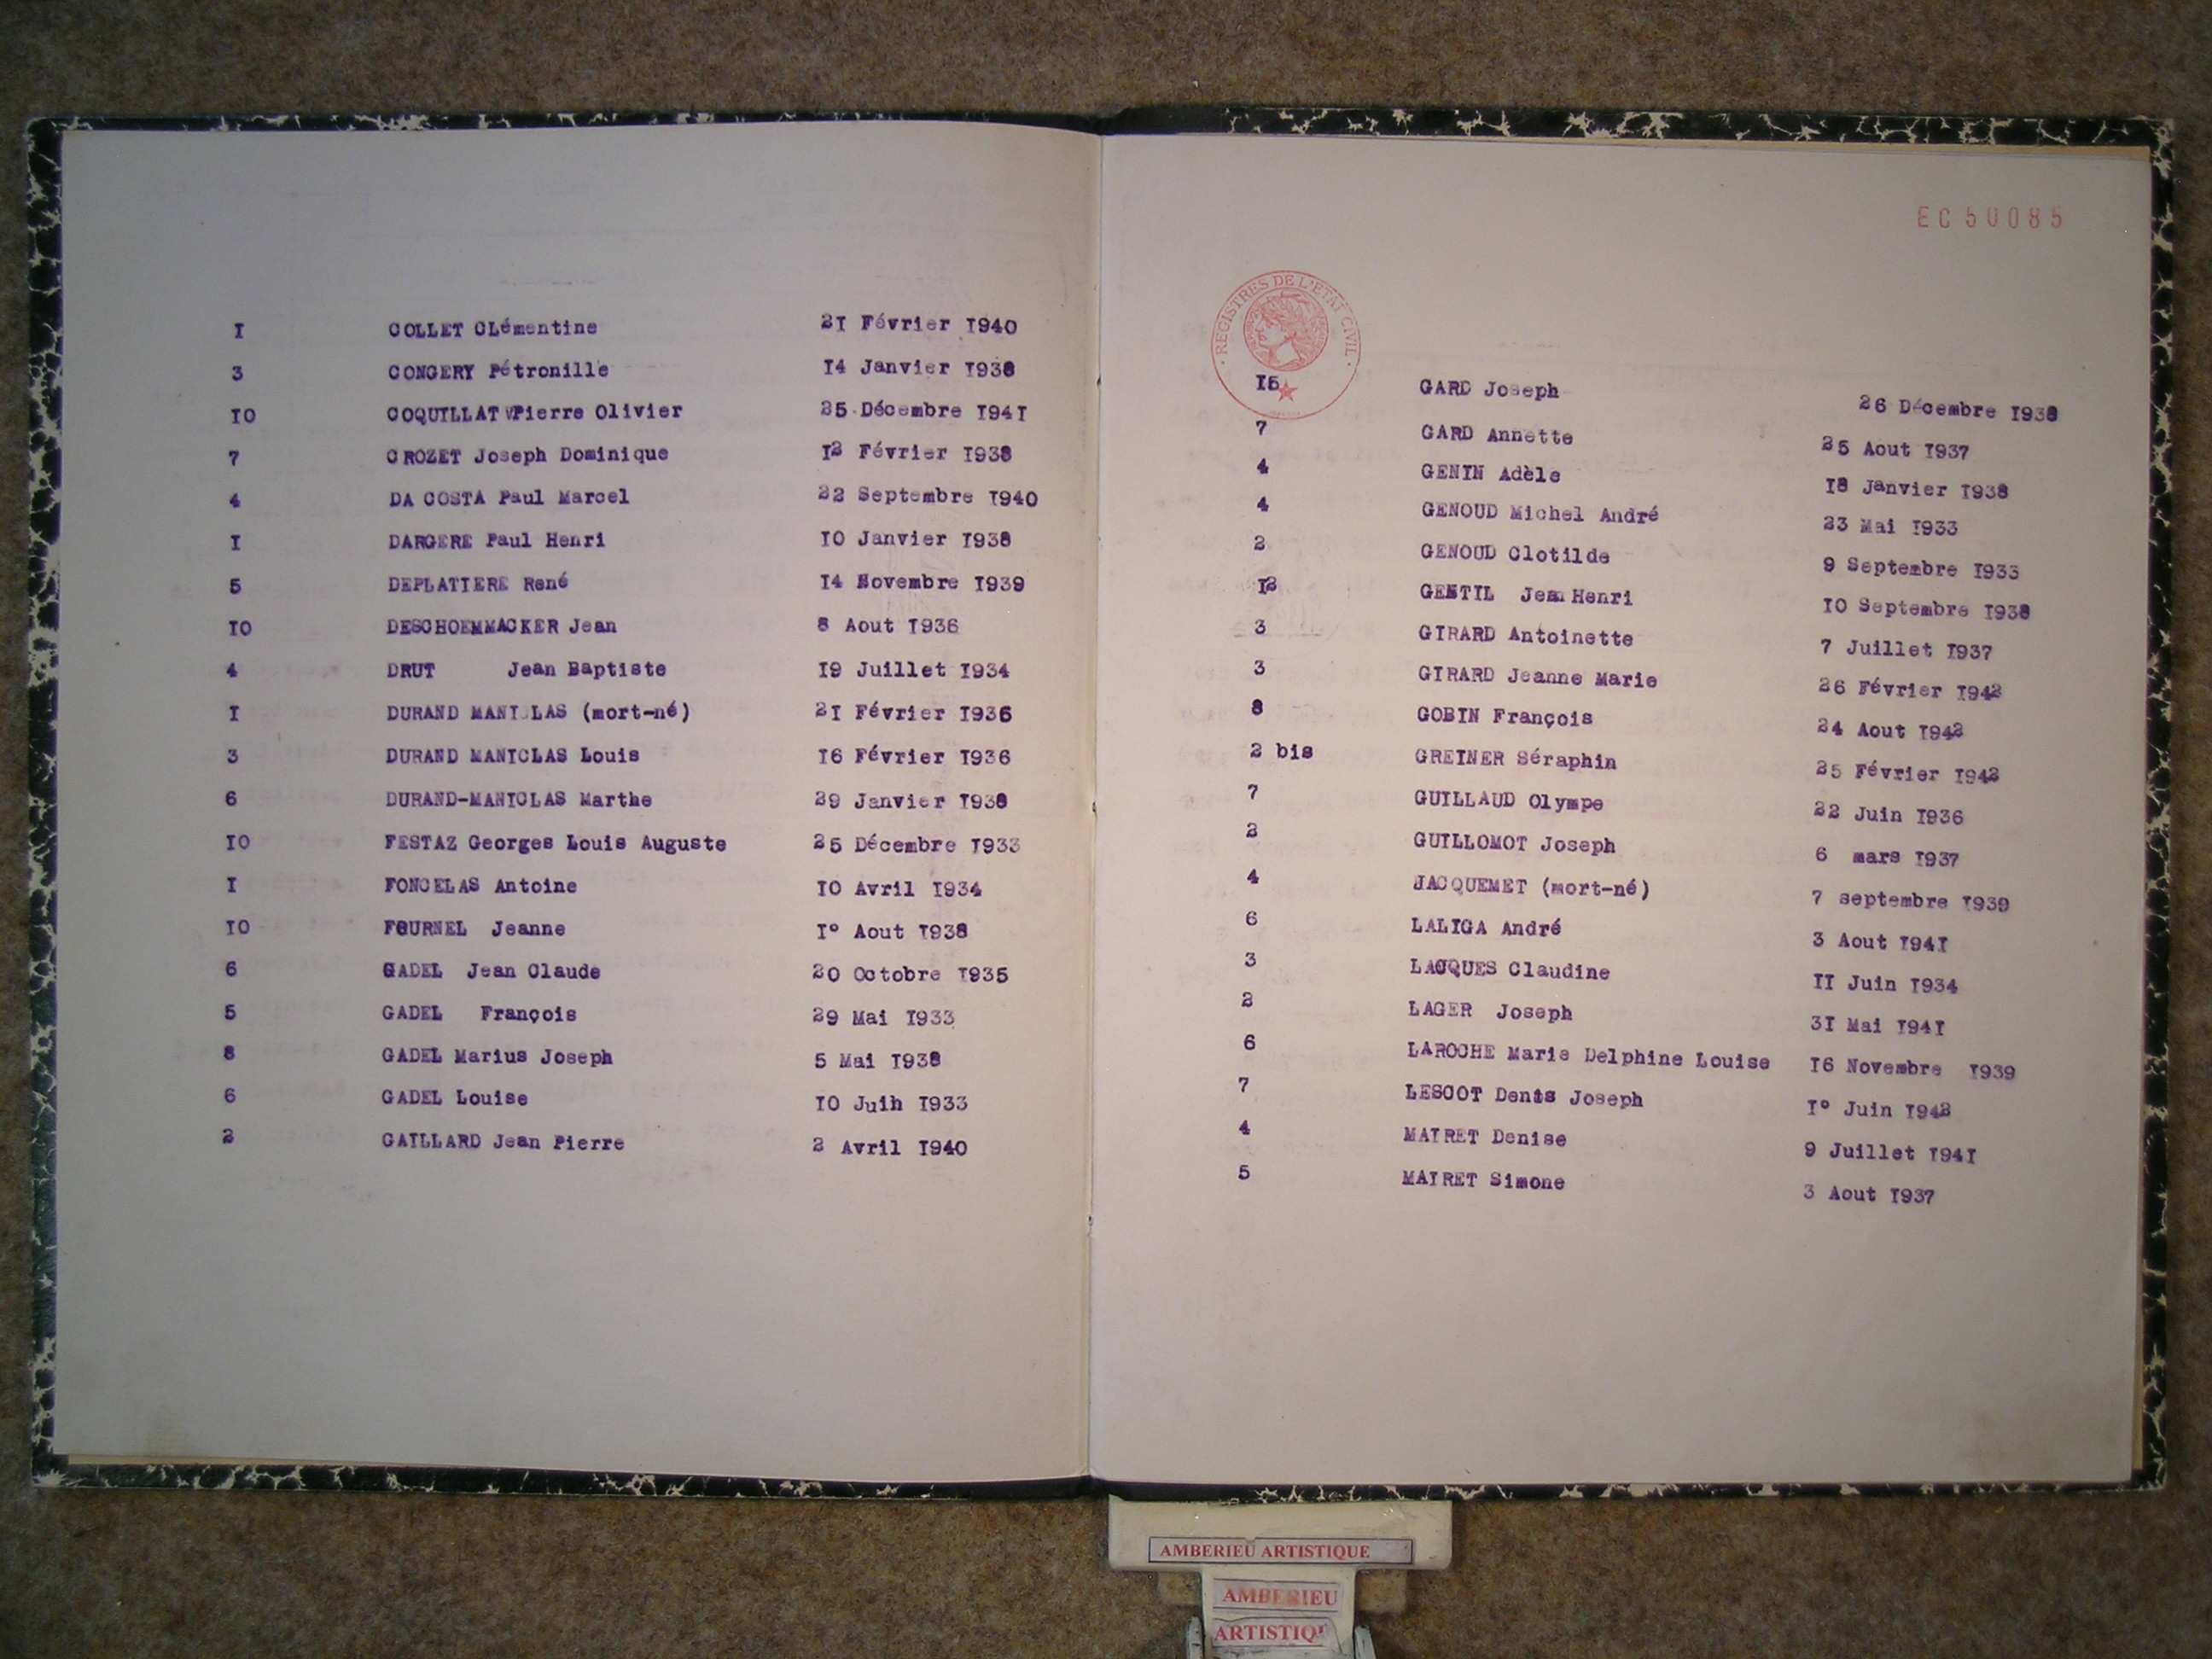 I COLLET CLémentine 21 Février I940
3 CONGERY Pétronille 14 Janvier I938
IO COQUILLAT Pierre Olivier 25 Décembre I94I
7 CROZET Joseph Dominique I2 Février I938
4 DA COSTA Paul Marcel 22 Septembre I940
I DARGERE Paul Henri IO Janvier I938
5 DEPLATIERE René I4 Novembre I939
IO DESCHOEMMACKER Jean 8 Aout I936
4 DRUT Jean Baptiste I9 Juillet I934
I DURAND MANICLAS (mort-né) 2I Février I936
3 DURAND MANICLAS Louis I6 Février I936
6 DURAND-MANICLAS Marthe 29 Janvier I938
IO FESTAZ Georges Louis Auguste 25 Décembre I933
I FONCELAS Antoine IO Avril I934
IO FOURNEL Jeanne I° Aout I938
6 GADEL Jean Claude 20 Octobre I935
5 GADEL François 29 Mai I933
8 GADEL Marius Joseph 5 Mai I938
6 GADEL Louise IO Juin I933
2 GAILLARD Jean Pierre 2 Avril I940
EC 50085
· REGISTRES DE L'ETAT CIVIL ·
I5 GARD Joseph 26 Décembre I938
7 GARD Annette 25 Aout I937
4 GENIN Adèle I8 Janvier I938
4 GENOUD Michel André 23 Mai I933
2 GENOUD Clotilde 9 Septembre I933
I2 GENTIL Jean Henri IO Septembre I938
3 GIRARD Antoinette 7 Juillet I937
3 GIRARD Jeanne Marie 26 Février I942
8 GOBIN François 24 Aout I942
2 bis GREINER Séraphin 25 Février I942
7 GUILLAUD Olympe 22 Juin I936
2 GUILLOMOT Joseph 6 mars I937
4 JACQUEMET (mort-né) 7 septembre I939
6 LALIGA André 3 Aout I94I
3 LACQUES Claudine II Juin I934
2 LAGER Joseph 3I Mai I94I
6 LAROCHE Marie Delphine Louise I6 Novembre I939
7 LESCOT Denis Joseph I° Juin I942
4 MAIRET Denise 9 Juillet I94I
5 MAIRET Simone 3 Aout I937
AMBERIEU ARTISTIQUE
AMBERIEU